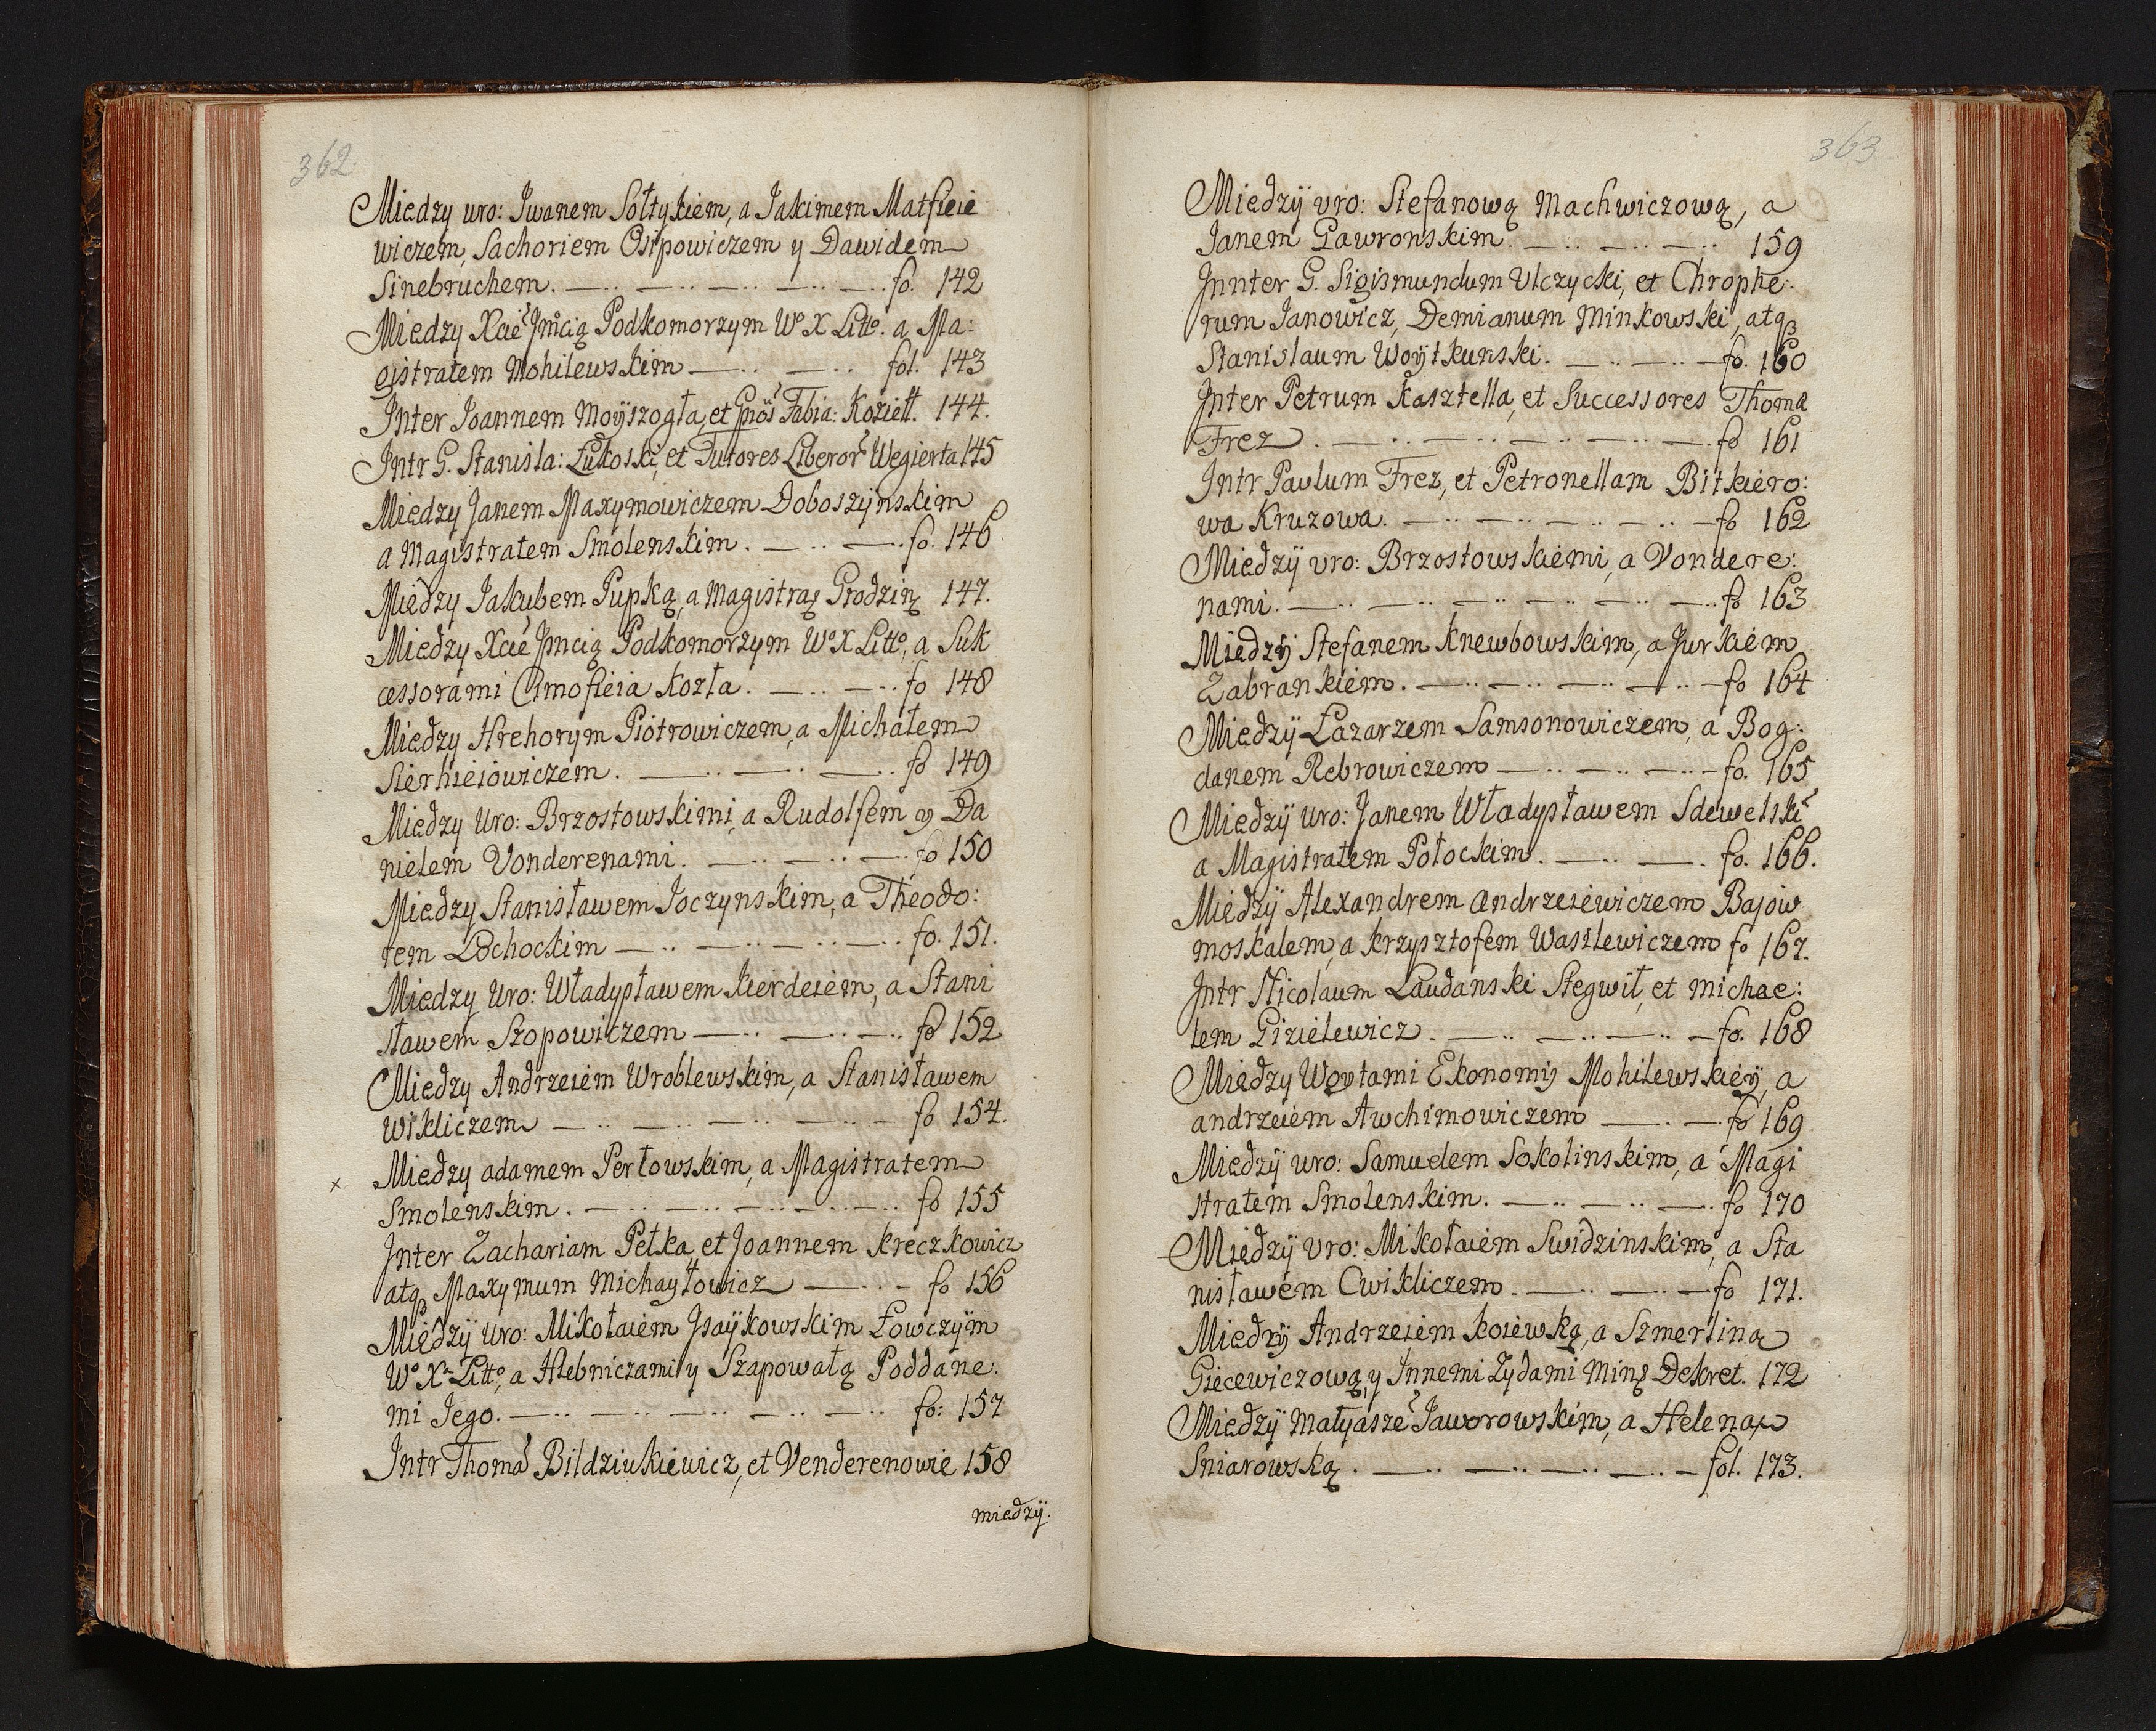 362.
Miedzy uro: Iwanem Sołtykiem, a Jakimem Matfieie
wiczem, Sachoriem Osipowiczem y Dawidem
Sinebruchem. fo. 142
Miedzy Xcie Jmcią Podkomorzym Wo X Litto. a Ma:
gistratem Mohilewskim fol. 143
Inter Ioannem Moÿszogła, et Gnos Fabia: Koziełł. 144.
Intr G. Stanisla: Łukoski, et Tutores Liberor Wegierta 145
Miedzy Janem Maxymowiczem Doboszÿnskim
a Magistratem Smolenskim. fo. 146
Miedzy Jakubem Pupką, a Magistrą Grodzin 147.
Miedzy Xcie Jmcią Podkomorzym Wo X Litto, a Suk
cessorami Cimofieia Kozła. fo 148
Miedzy Hrehorym Piotrowiczem, a Michałem
Sierhieiowiczem. fo 149
Miedzy Uro: Brzostowskimi, a Rudolfem y Da
nielem Vonderenami. fo 150
Miedzy Stanisławem Joczynskim, a Theodo:
rem Lochockim fo. 151.
Miedzy Uro: Władysławem Kierdeiem, a Stani
sławem Szopowiczem fo 152
Miedzy Andrzeiem Wroblewskim, a Stanisławem
Wikliczem fo 154.
x Miedzy adamem Perłowskim, a Magistratem
Smolenskim. fo 155
Inter Zachariam Petka, et Joannem Kreczkowicz
atq Maxymum Michayłowicz fo 156
Miedzÿ Uro: Mikołaiem Jsaÿkowskim Łowczÿm
Wo Xa Litto, a Hlebniczami y Szapowałą Poddane:
mi Jego. fo: 157
Intr Thoma Bildziukiewicz, et Venderenowie 158
miedzÿ.
363
Miedzÿ vro: Stefanową Machwiczową, a
Janem Gawronskim. 159
Innter G. Sigismundum Ulczycki, et Chrophe:
rum Janowicz, Demianum Minkowski, atq
Stanislaum Woÿtkunski. fo. 160
Inter Petrum Kasztella, et Successores Thoma
Frez. fo 161
Intr Paulum Frez, et Petronellam Bitkiero:
wa Kruzowa. fo 162
Miedzÿ vro: Brzostowskiemi, a Vondere:
nami. fo 163
Miedzÿ Stefanem Knewbowskim, a Jurkiem
Zabrankiem. fo 164
Miedzÿ Łazarzem Samsonowiczem, a Bog:
danem Rebrowiczem fo. 165
Miedzÿ Uro: Janem Władysławem Sdewelski
a Magistratem Połockim. fo. 166.
Miedzÿ Alexandrem Andrzeiewiczem Bajow
moskalem, a Krzysztofem Wasilewiczem fo 167.
Intr Nicolaum Laudanski Stegwił, et Michae:
lem Gizielewicz. fo. 168
Miedzy Woytami Ekonomij Mohilewskieÿ, a
andrzeiem Awchimowiczem fo 169
Miedzÿ uro: Samuelem Sokolinskim, a Magi
stratem Smolenskim. fo 170
Miedzÿ vro: Mikołaiem Swidzinskim, a Sta
nisławem Cwikliczem. fo 171.
Miedzÿ Andrzeiem Koiewką, a Szmerliną
Giecewiczową, y Innemi Zydami Ming Dekret. 172
Miedzÿ Matyasze Jaworowskim, a Heleną
Sniarowską. fol. 173.